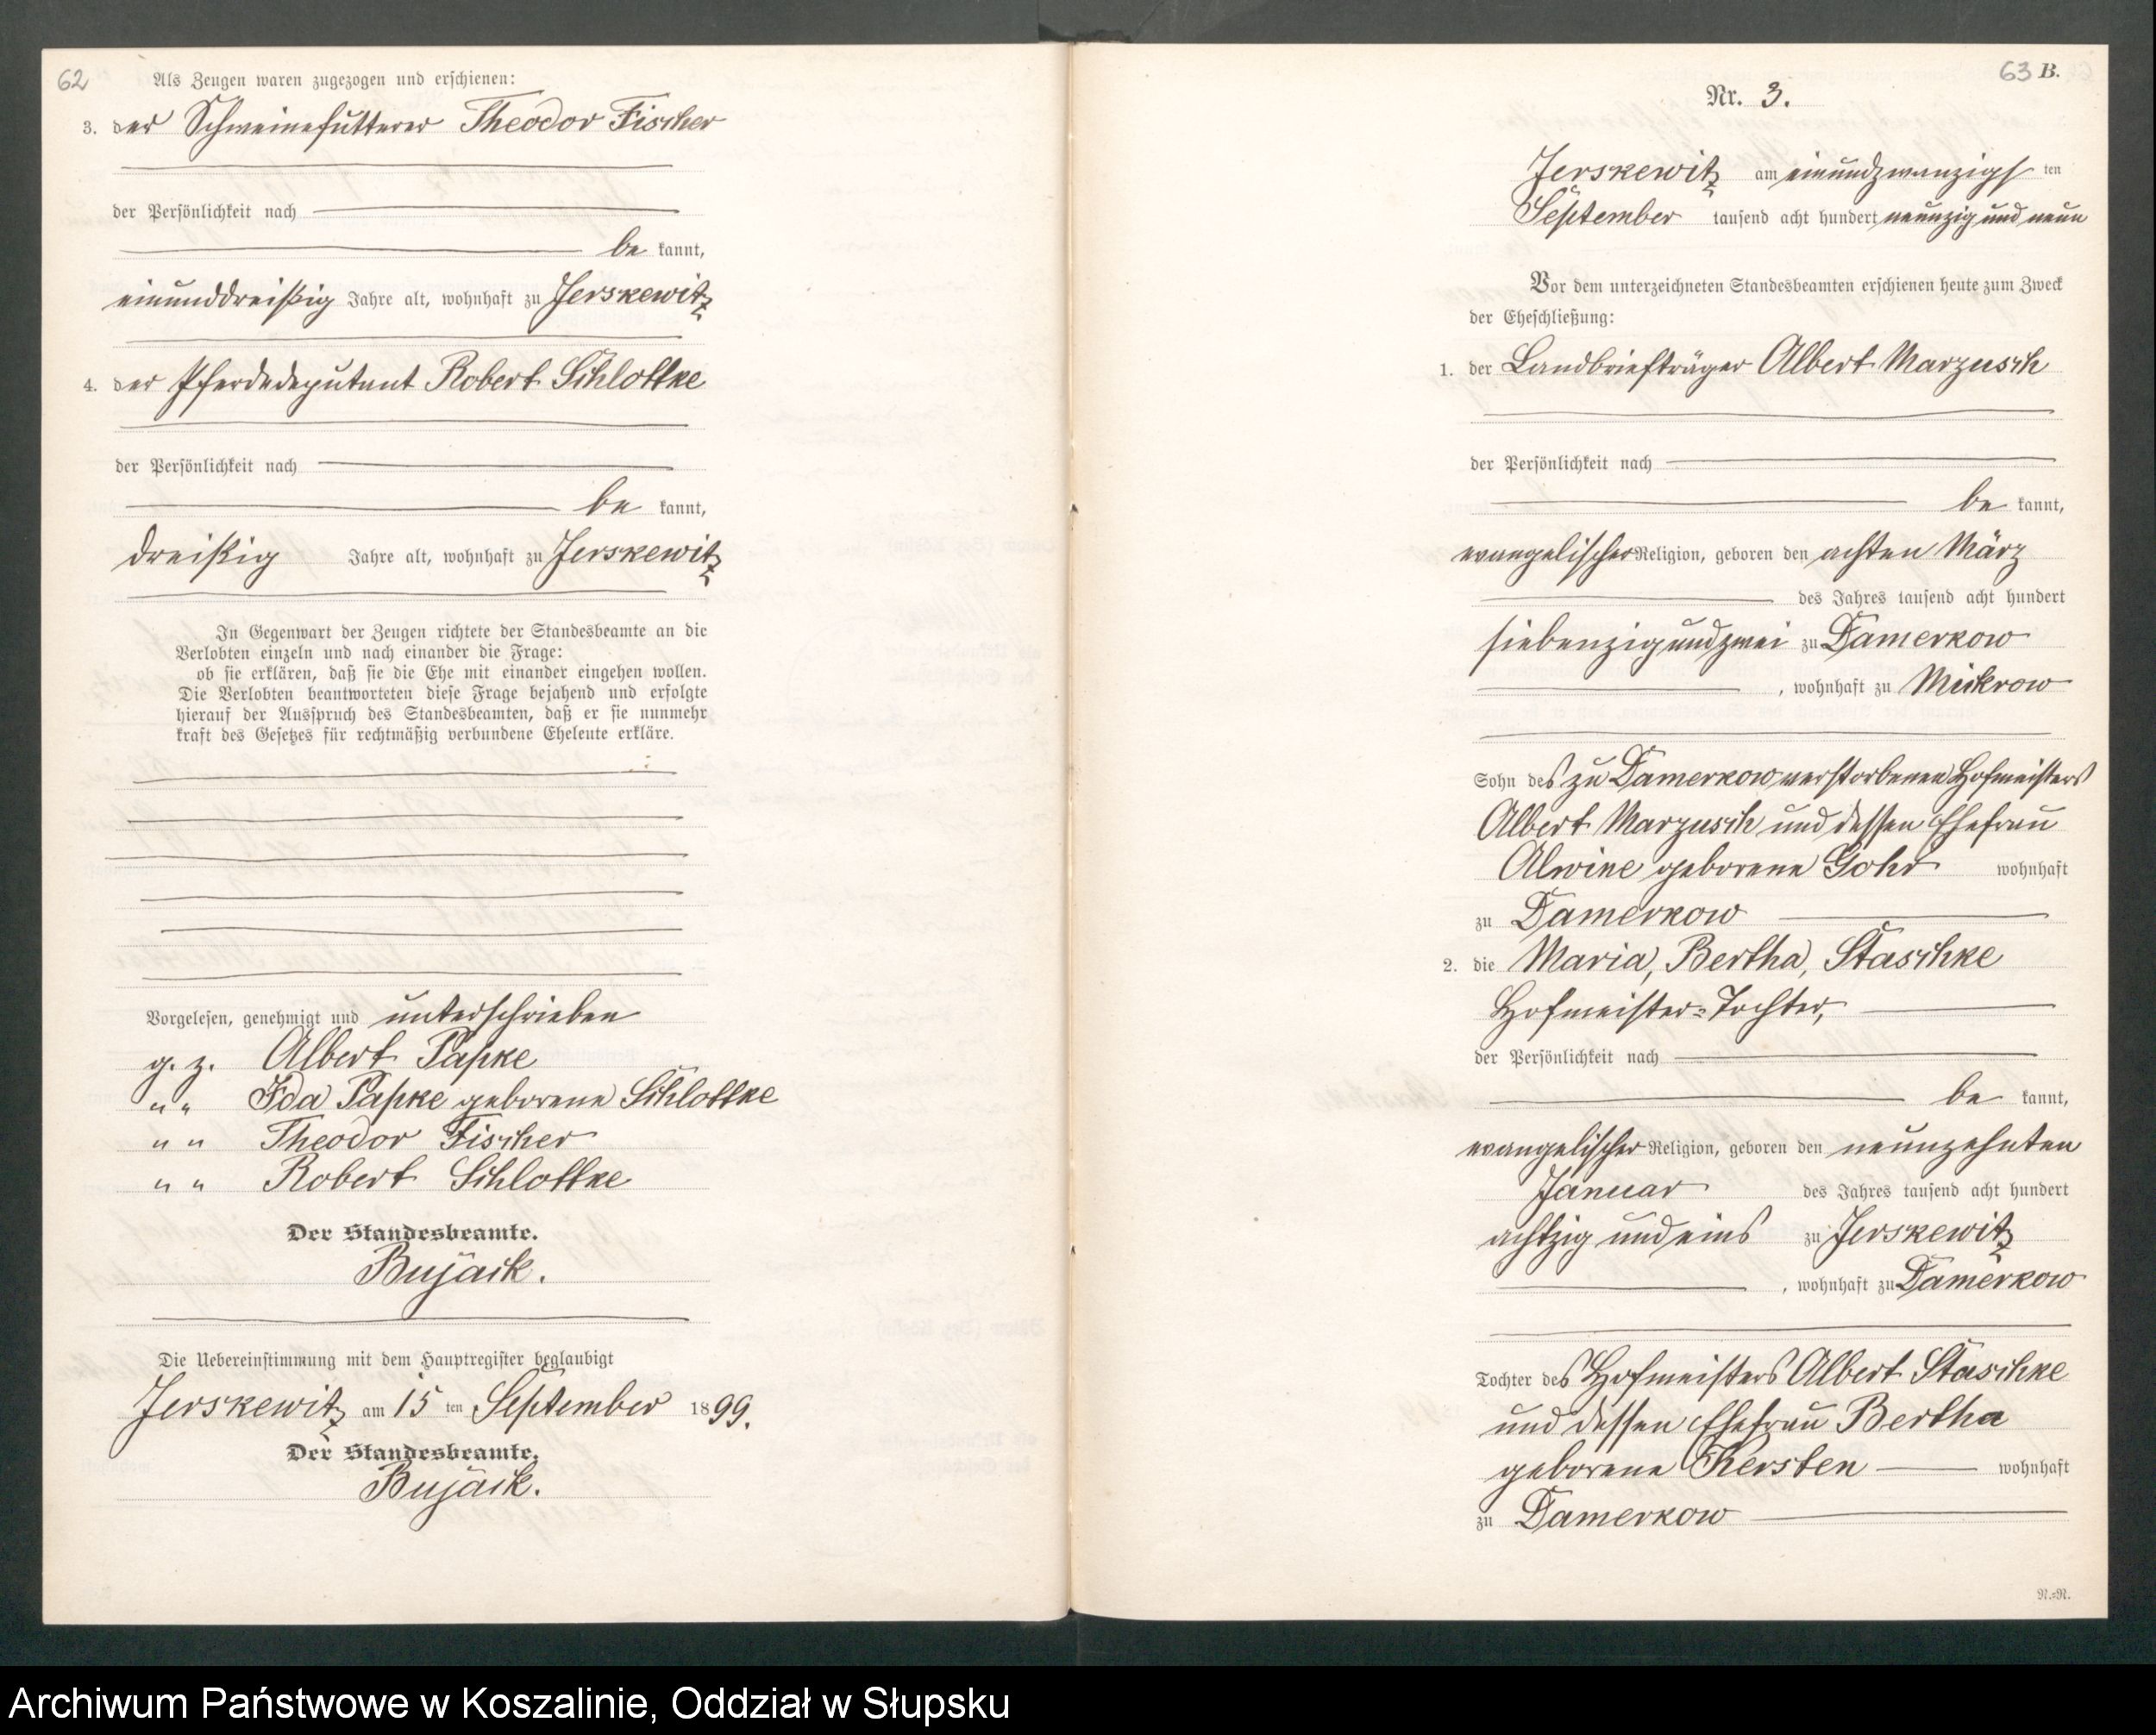 62
Als Zeugen waren zugezogen und erschienen:
3. der Schweinefütterer Theodor Fischer
der Persönlichkeit nach
be kannt,
einunddreißig Jahre alt, wohnhaft zu Jerskewitz
4. der Pferdedeputant Robert Schlottke
der Persönlichkeit nach
be kannt,
dreißig Jahre alt, wohnhaft zu Jerskewitz
In Gegenwart der Zeugen richtete der Standesbeamte an die
Verlobten einzeln und nach einander die Frage:
ob sie erklären, daß sie die Ehe mit einander eingehen wollen.
Die Verlobten beantworteten diese Frage bejahend und erfolgte
hierauf der Ausspruch des Standesbeamten, daß er sie nunmehr
kraft des Gesetzes für rechtmäßig verbundene Eheleute erkläre.
Vorgelesen, genehmigt und unterschrieben
g. z. Albert Papke
" " Ida Papke geborene Schlottke
" " Theodor Fischer
" " Robert Schlottke
Der Standesbeamte.
Bujack.
Die Uebereinstimmung mit dem Hauptregister beglaubigt
Jerskewitz am 15 ten September 1899.
Der Standesbeamte.
Bujack.
63 B.
Nr. 3.
Jerskewitz am einundzwanzigs ten
September tausend acht hundert neunzig und neun
Vor dem unterzeichneten Standesbeamten erschienen heute zum Zweck
der Eheschließung:
1. der Landbriefträger Albert Marzusch
der Persönlichkeit nach
be kannt,
evangelischer Religion, geboren den achten März
des Jahres tausend acht hundert
siebenzig und zwei zu Damerkow
, wohnhaft zu Mickrow
Sohn des zu Damerkow verstorbenen Hofmeisters
Albert Marzusch und dessen Ehefrau
Alwine geborene Gohr wohnhaft
zu Damerkow
2. die Maria, Bertha, Staschke
Hofmeister-Tochter,
der Persönlichkeit nach
be kannt,
evangelischer Religion, geboren den neunzehnten
Januar des Jahres tausend acht hundert
achtzig und eins zu Jerskewitz
, wohnhaft zu Damerkow
Tochter des Hofmeisters Albert Staschke
und dessen Ehefrau Bertha
geborene Kersten wohnhaft
zu Damerkow
N.=N.
Archiwum Państwowe w Koszalinie, Oddział w Słupsku